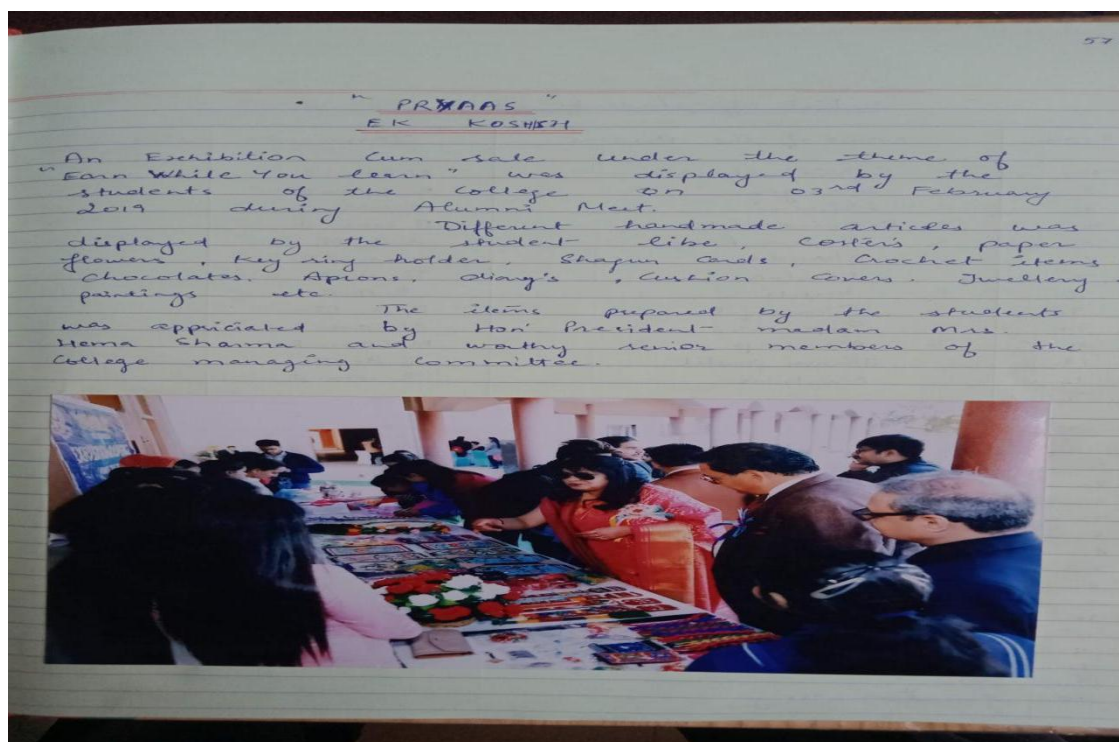 57
" PRYAAS "
EK KOSHISH
An Exhibition Cum sale under the theme of
"Earn While You learn" was displayed by the
students of the College on 03rd February
2019 during Alumni Meet.
Different handmade articles was
displayed by the student like, Coster's, paper
flowers, Key ring holder, Shagun Cards, Crochet items
Chocolates, Aprons, diary's, Cushion Covers, Jwellery
paintings etc.
The items prepared by the students
was appriciated by Hon' President madam Mrs.
Hema Sharma and worthy senior members of the
College managing Committee.